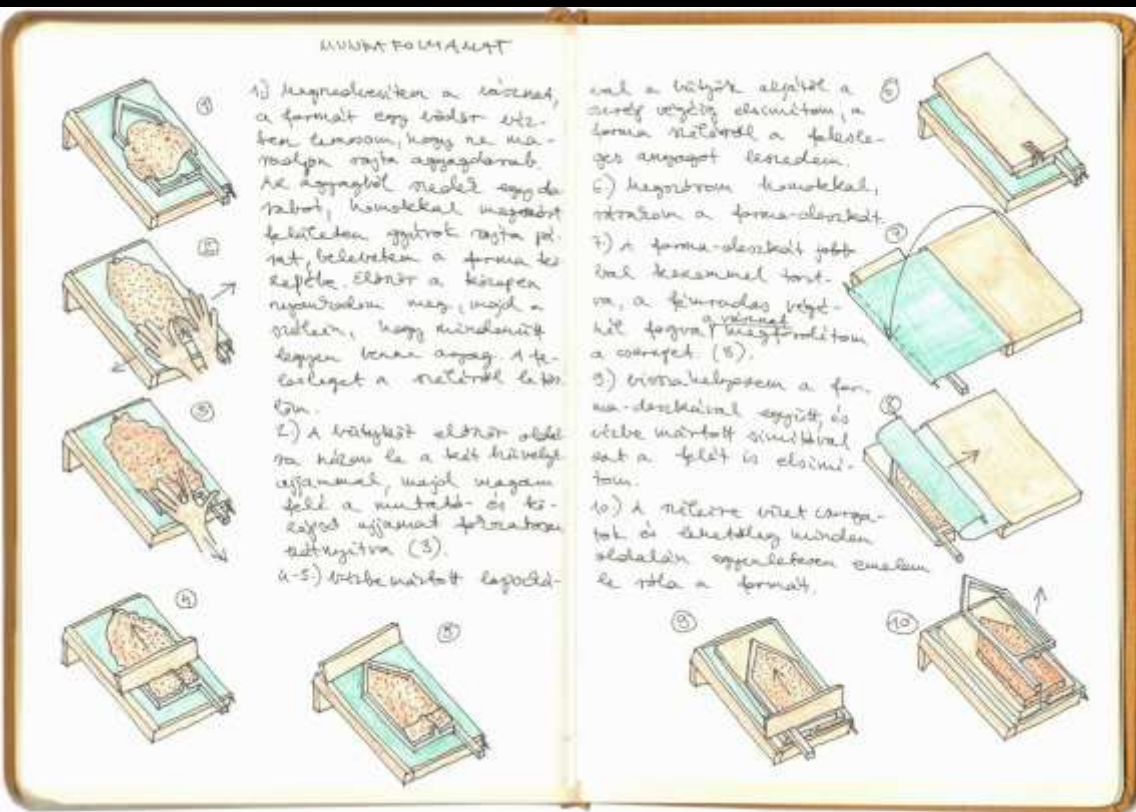 MUNKAFOLYAMAT
1) Megnedvesítem a vásznat,
a formát egy vödör víz-
ben lemosom, hogy ne ma-
radjon rajta agyagdarab.
Az agyagból szedek egy da
rabot, homokkal megszórt
felületen gyúrok rajta pá-
rat, beleteszem a forma kö
zepébe. Először a közepén
nyomkodom meg, majd a
szélein, hogy mindenütt
legyen benne anyag. A fe-
lesleget a széléről
2) A bütyköt először oldal
ra húzom le a két hüvelyk
ujjammal, majd magam
felé a mutató- és kö-
zépső ujjamat fokozatosan
szétnyitva (3).
4-5.) vízbe mártott lapocká-
val a bütyök aljától a
cserép végéig elsimítom, a
forma széléről a felesle-
ges anyagot leszedem.
6) Megszórom homokkal,
rárakom a forma-deszkát
7) A forma-deszkát jobb
kezemmel tart-
va, a fémrudas végé-
nél fogva a vásznat megfordítom
a cserepet. (8).
9) visszahelyezem a for-
ma-deszkával együtt, és
vízbe mártott simítóval
ezt a felét is elsimí-
tom.
10.) A széleire vizet csorga-
tok és lehetőleg minden
oldalán egyenletesen emelem
le róla a formát.
1
2
3
4
5
6
7
8
9
10